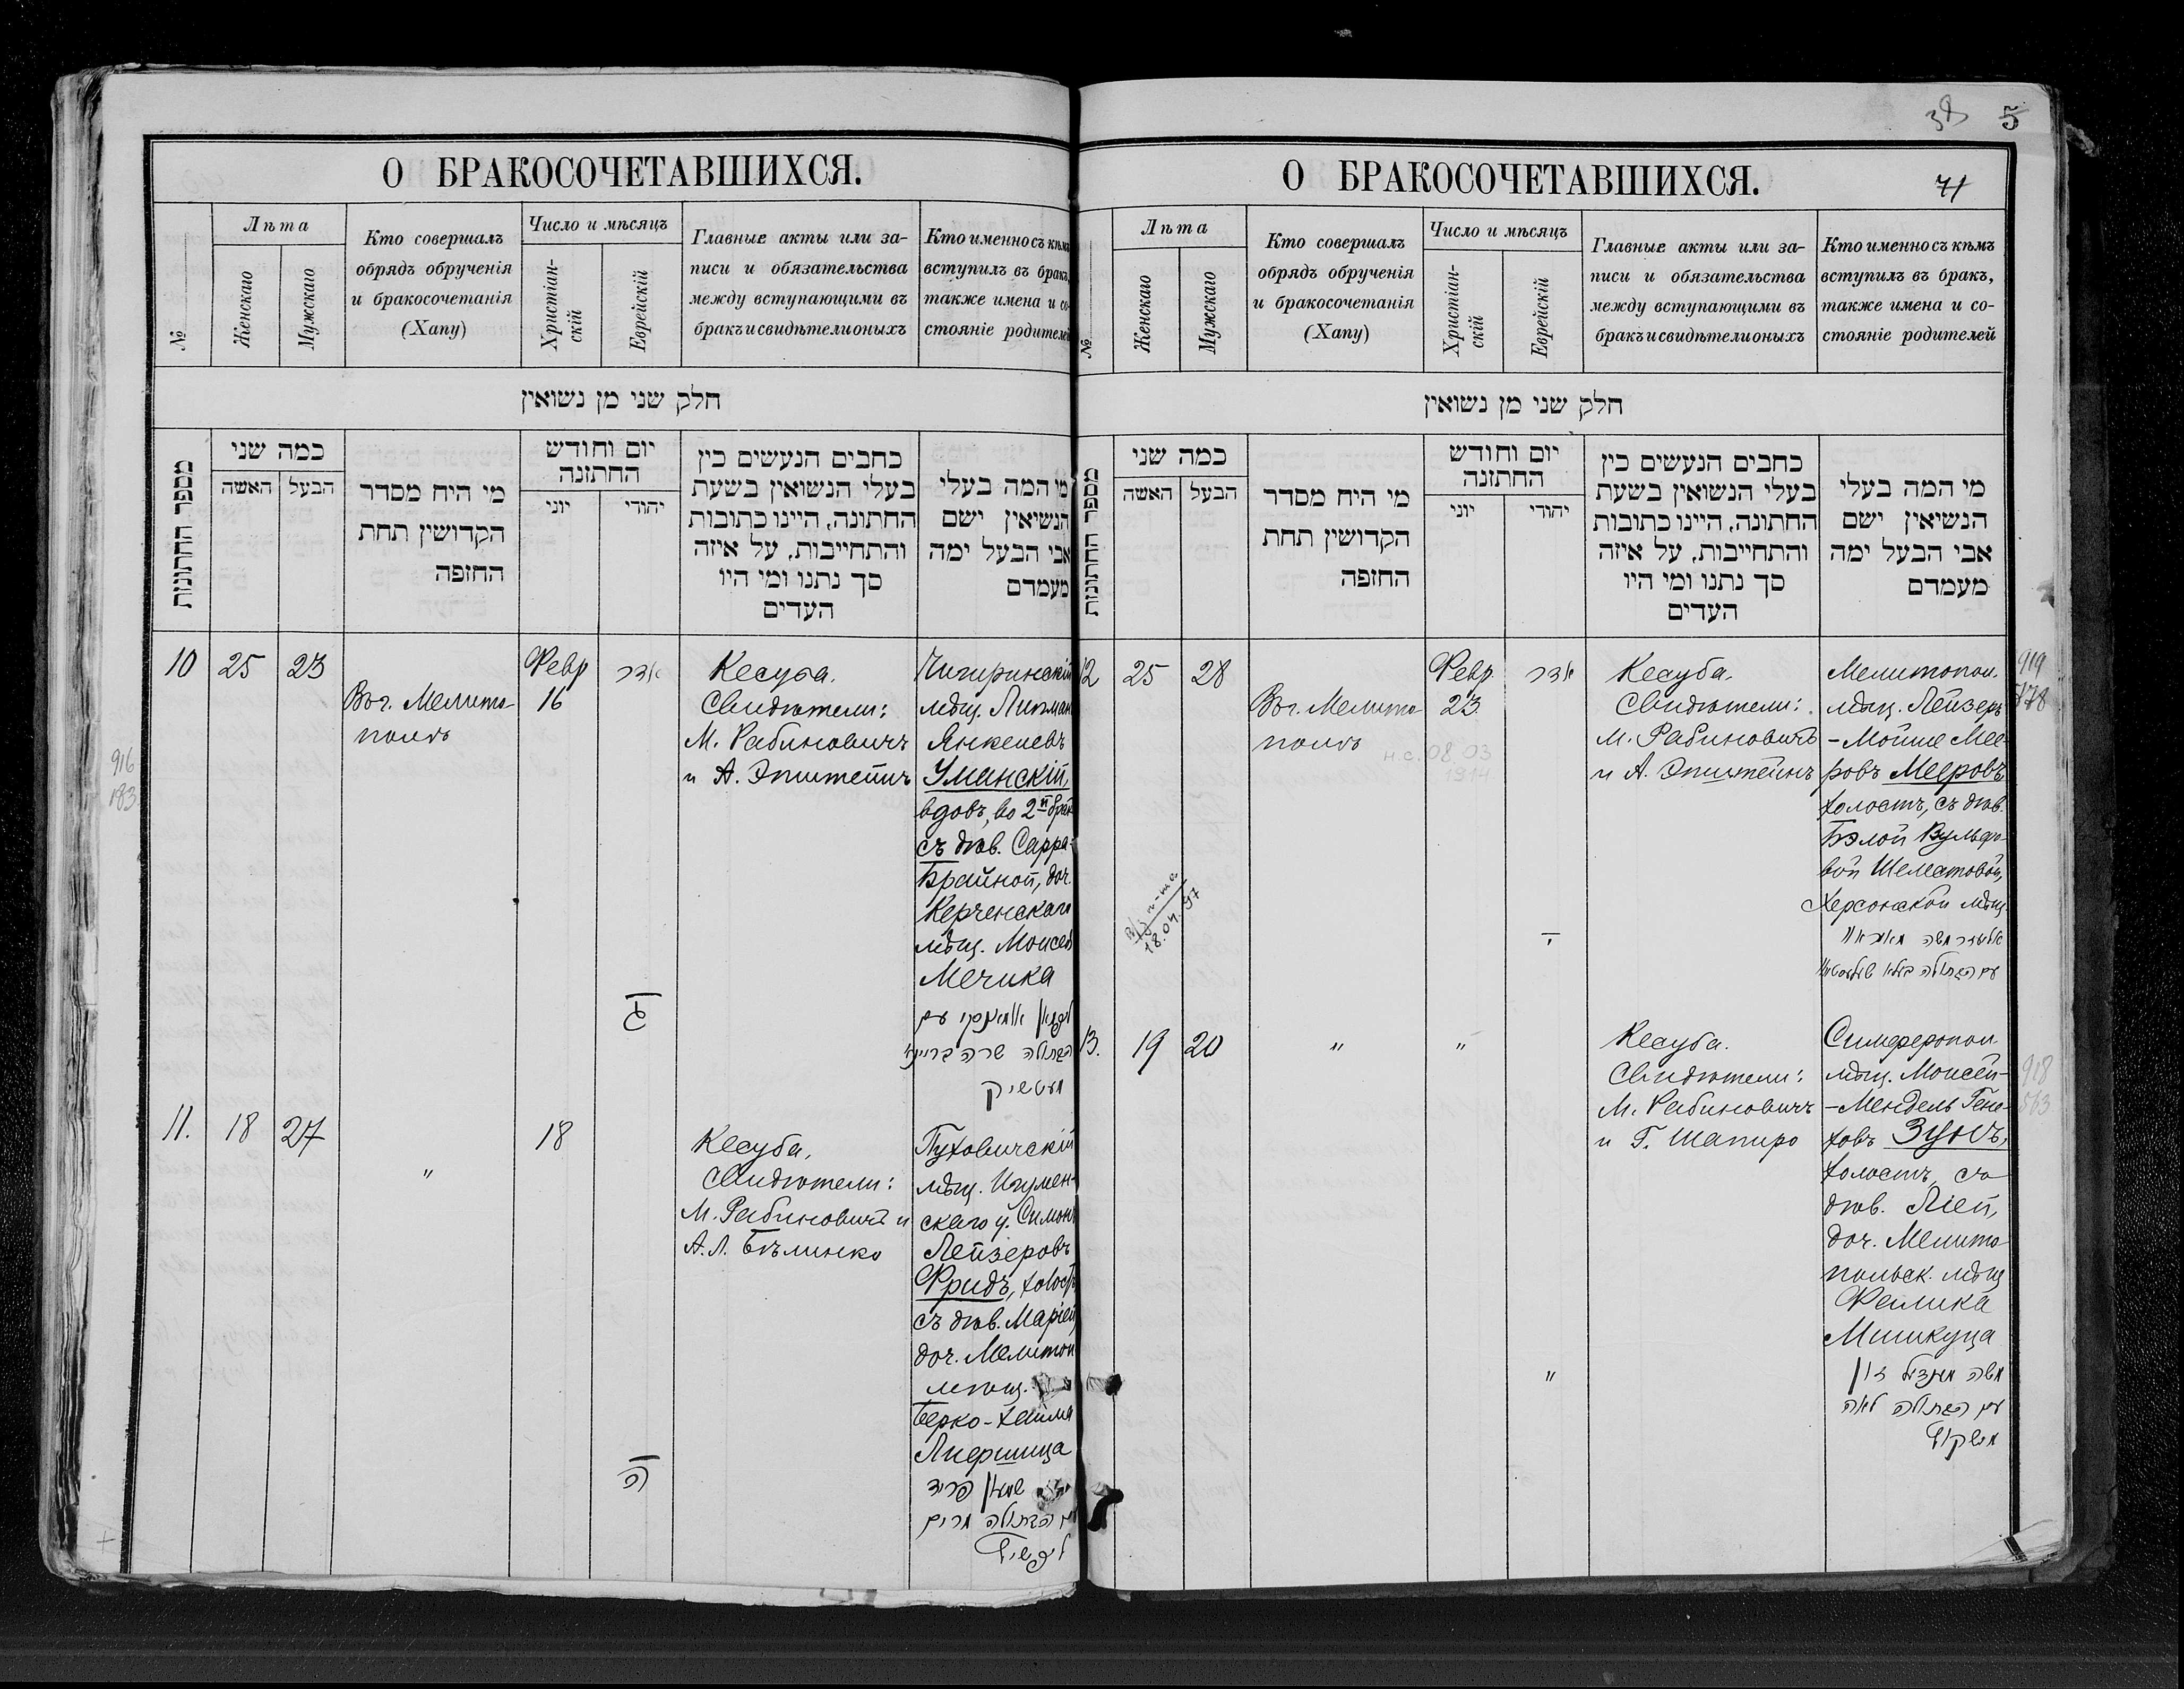 О БРАКОСОЧЕТАВШИХСЯ.
№
Лѣта
Женскаго
Мужскаго
Кто совершалъ
обрядъ обрученія
и бракосочетанія
(Хапу)
Число и мѣсяцъ
Христіан-
скій
Еврейскій
Главные акты или за-
писи и обязательства
между вступающими въ
бракъ и свидѣтели оныхъ
Кто именно съ кѣмъ
вступилъ въ бракъ,
также имена и со-
стояніе родителей
חלק שני מן נשואין
מספר החתונות
כמה שני
האשה
הבעל
מי היח מסדר
הקדושין תחת
החופה
יום וחודש
החתונה
יוני
יהודי
כחבים הנעשים כין
בעלי הנשואין בשעת
החתונה, היינו כתובות
והתחייבות, על איזה
סך נתנו ומי היו
העדים
מי המה בעלי
הנשיאין ישם
אבי הבעל ימה
מעמדם
916
183
10
25
23
Въ г. Мелито-
полѣ
Февр
16
אדר
יג
Кесуба.
Свидѣтели:
М. Рабиновичъ
и А. Эпштейнъ
Чигиринскій
мѣщ. Липман
Янкелевъ
Уманскій,
вдовъ, во 2й брак
съ дѣв. Сарра-
Брайной, доч.
Керченскаго
мѣщ. Моисея
Мечика
ליפמאן אומאנסקי עם
הבתולה שרה בריינא
מעטשיק
11.
18
27
"
18
Кесуба,
Свидѣтели:
М. Рабиновичъ и
А. Л. Бѣлинко
Пуховичскій
мѣщ. Игумен-
скаго у. Симонъ
Лейзеровъ
Фридъ, холостъ
съ дѣв. Маріей,
доч. Мелитоп
Берко-Хаима
Лифшица
שמעון פריד
עם הבתולה מרים
ליפשיץ
38 5
О БРАКОСОЧЕТАВШИХСЯ.
71
№
Лѣта
Женскаго
Мужскаго
Кто совершалъ
обрядъ обрученія
и бракосочетанія
(Хапу)
Число и мѣсяцъ
Христіан-
скій
Еврейскій
Главные акты или за-
писи и обязательства
между вступающими въ
бракъ и свидѣтели оныхъ
Кто именно съ кѣмъ
вступилъ въ бракъ,
также имена и со-
стояніе родителей
חלק שני מן נשואין
מספר החתונות
כמה שני
האשה
הבעל
מי היח מסדר
הקדושין תחת
החופה
יום וחודש
החתונה
יוני
יהודי
כחבים הנעשים כין
בעלי הנשואין בשעת
החתונה, היינו כתובות
והתחייבות, על איזה
סך נתנו ומי היו
העדים
מי המה בעלי
הנשיאין ישם
אבי הבעל ימה
מעמדם
12
25
28
Въ г. Мелито-
полѣ
н.с. 08 03
1914
18.04.97
Февр.
23.
אדר
Кесуба.
Свидѣтели:
М. Рабиновичъ
и А. Эпштейнъ
Мелитопол.
мѣщ. Лейзеръ
-Мойше Мее-
ровъ Мееровъ,
холостъ, съ дѣв.
Бэлой Вульфо-
вой Шелматовой,
Херсонской мѣщ.
אליעזר משה
עם הבתולה ביילא
919
178
13.
19
20
"
"
"
Кесуба.
Свидѣтели:
М. Рабиновичъ
и Г. Шапиро
Симферопол.
мѣщ. Моисей-
-Мендель Гено-
ховъ Зунъ,
холостъ, съ
дѣв. Ліей,
доч. Мелито-
польск. мѣщ
Фелика
Мишкуца
משה מענדיל זון
עם הבתולה לאה
918
563